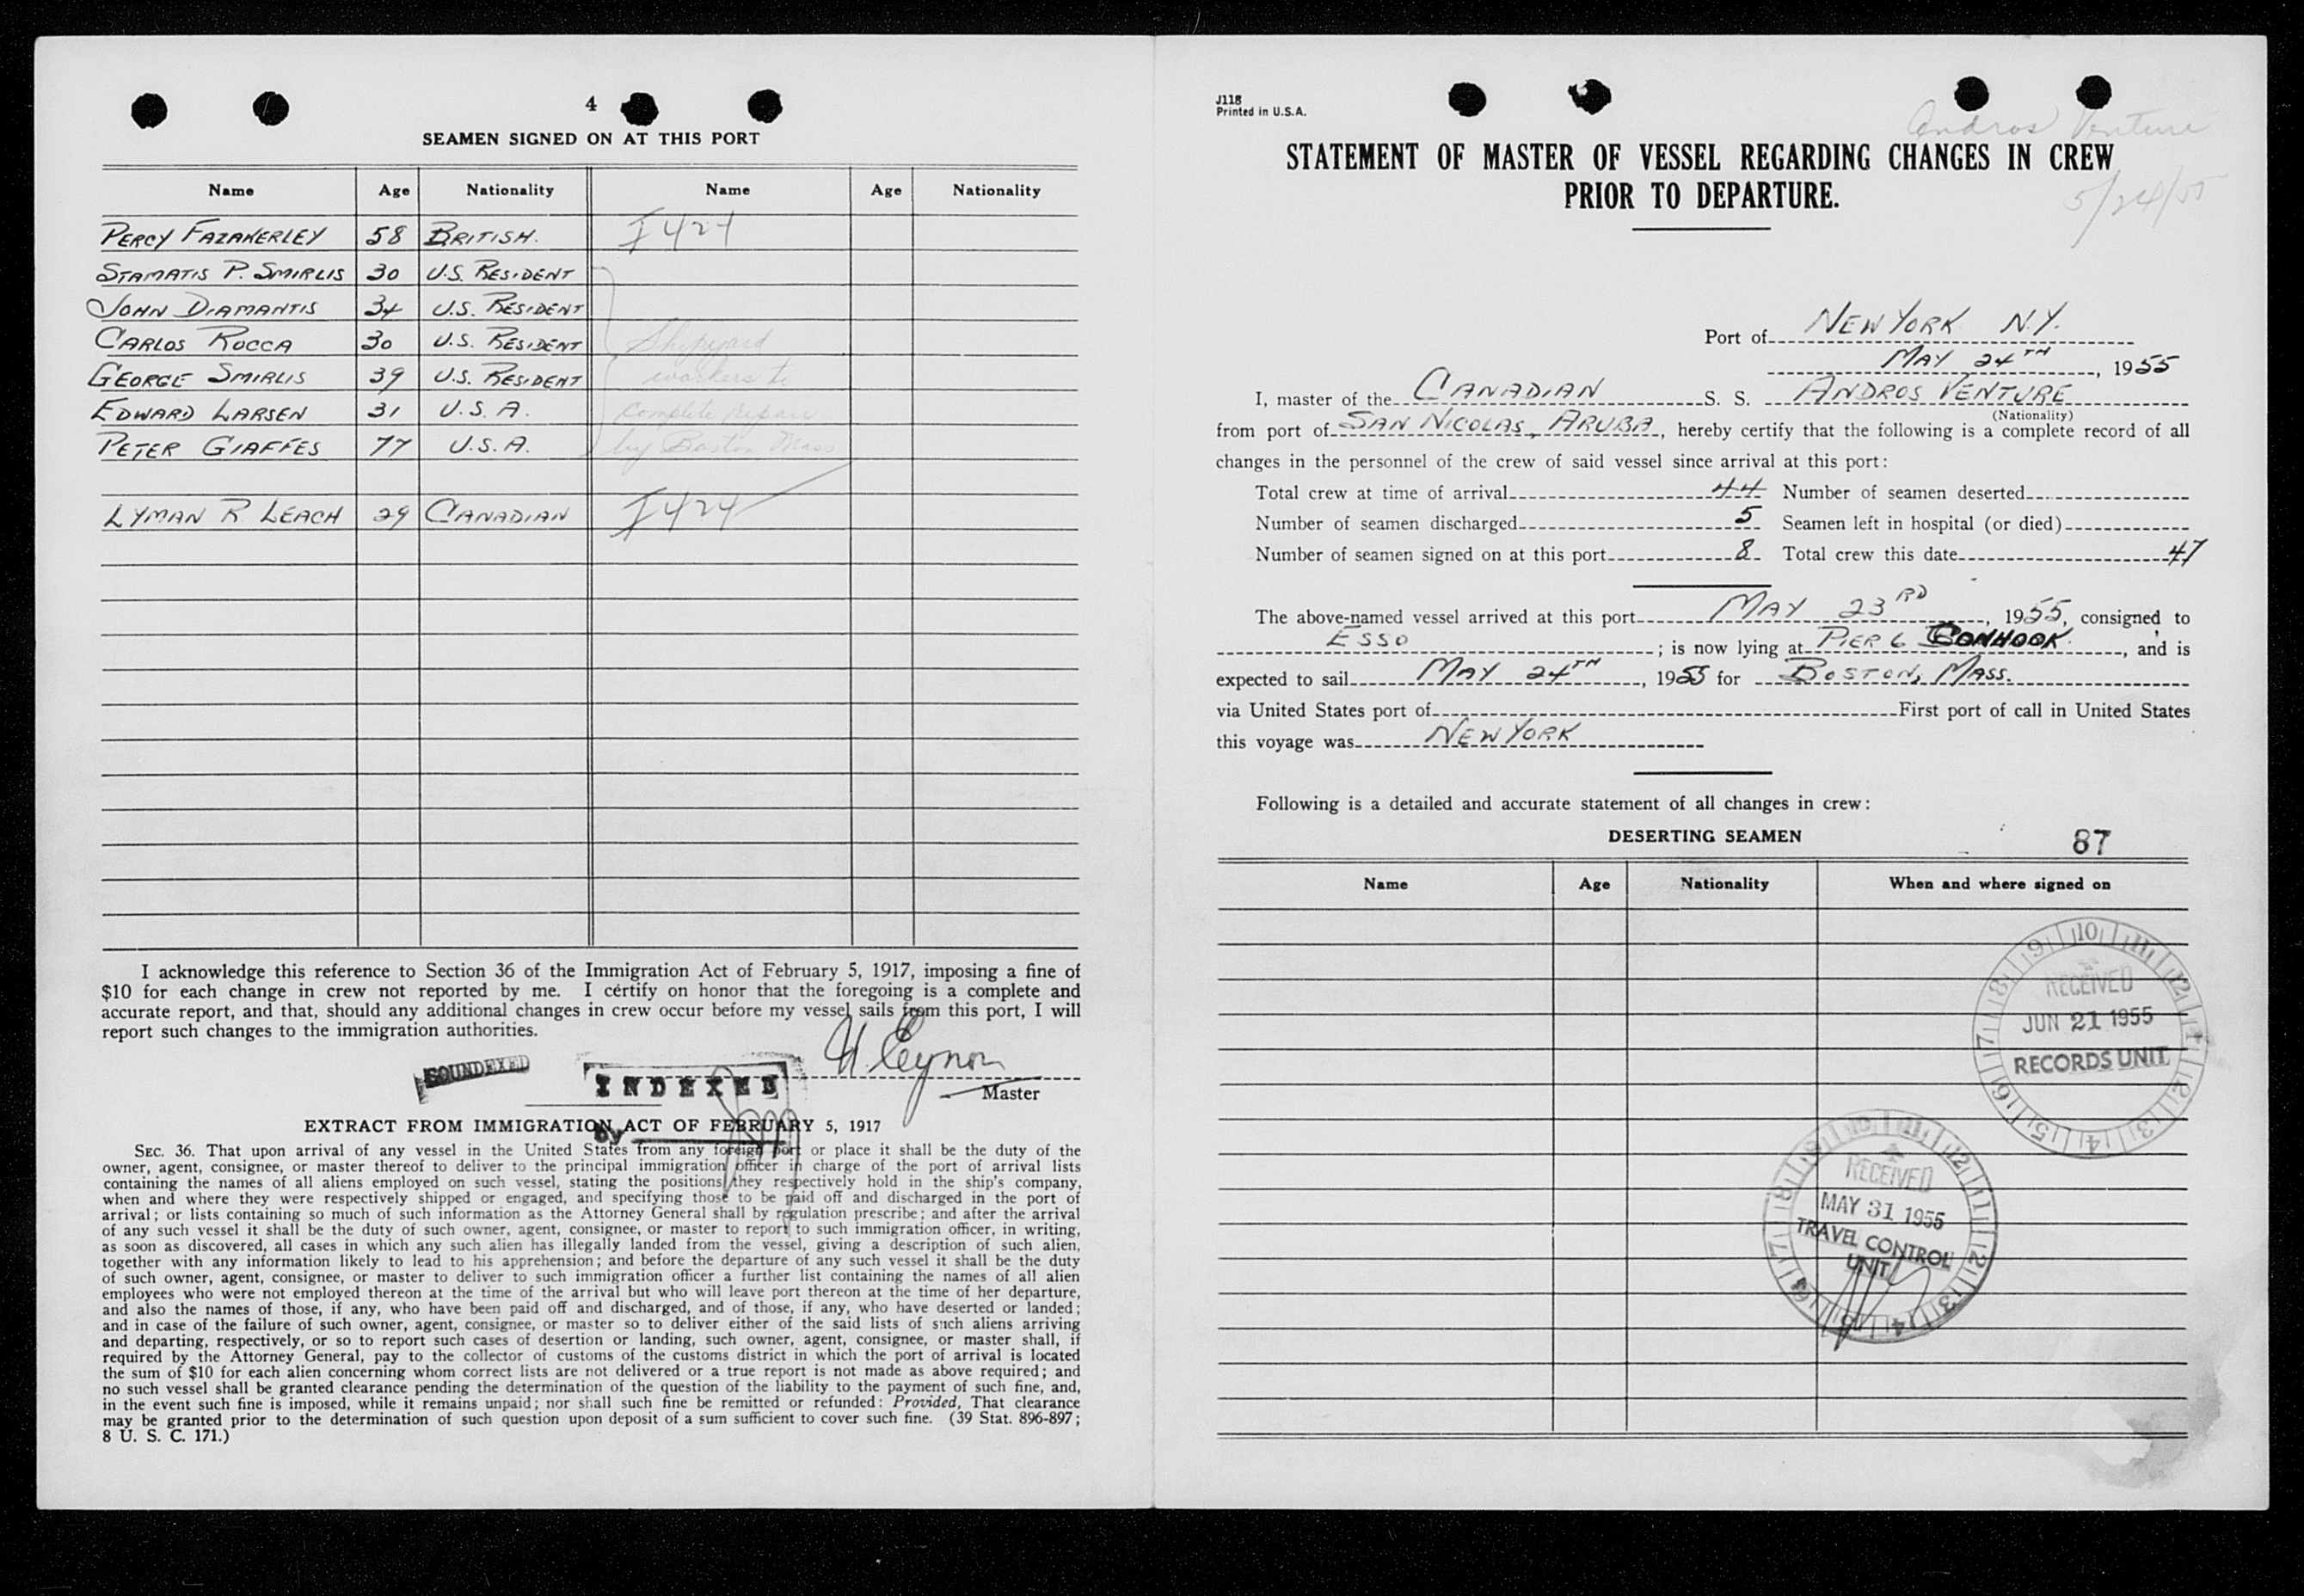 4
SEAMEN SIGNED ON AT THIS PORT
Name Age Nationality Name Age Nationality
PERCY FAZAKERLEY 58 BRITISH. I 424
STAMATIS P. SMIRLIS 30 U.S. RESIDENT
JOHN DIAMANTIS 34 U.S. RESIDENT
CARLOS ROCCA 30 U.S. RESIDENT Shipyard
GEORGE SMIRLIS 39 U.S. RESIDENT workers to
EDWARD LARSEN 31 U.S.A. complete repairs
PETER GIAFFES 77 U.S.A. by Boston Mass
LYMAN R LEACH 29 CANADIAN I 424
I acknowledge this reference to Section 36 of the Immigration Act of February 5, 1917, imposing a fine of
$10 for each change in crew not reported by me. I certify on honor that the foregoing is a complete and
accurate report, and that, should any additional changes in crew occur before my vessel sails from this port, I will
report such changes to the immigration authorities.
H Eynon
SOUNDEXED INDEXED
Master
EXTRACT FROM IMMIGRATION ACT OF FEBRUARY 5, 1917
By
SEC. 36. That upon arrival of any vessel in the United States from any foreign port or place it shall be the duty of the
owner, agent, consignee, or master thereof to deliver to the principal immigration officer in charge of the port of arrival lists
containing the names of all aliens employed on such vessel, stating the positions they respectively hold in the ship's company,
when and where they were respectively shipped or engaged, and specifying those to be paid off and discharged in the port of
arrival; or lists containing so much of such information as the Attorney General shall by regulation prescribe; and after the arrival
of any such vessel it shall be the duty of such owner, agent, consignee, or master to report to such immigration officer, in writing,
as soon as discovered, all cases in which any such alien has illegally landed from the vessel, giving a description of such alien,
together with any information likely to lead to his apprehension; and before the departure of any such vessel it shall be the duty
of such owner, agent, consignee, or master to deliver to such immigration officer a further list containing the names of all alien
employees who were not employed thereon at the time of the arrival but who will leave port thereon at the time of her departure,
and also the names of those, if any, who have been paid off and discharged, and of those, if any, who have deserted or landed;
and in case of the failure of such owner, agent, consignee, or master so to deliver either of the said lists of such aliens arriving
and departing, respectively, or so to report such cases of desertion or landing, such owner, agent, consignee, or master shall, if
required by the Attorney General, pay to the collector of customs of the customs district in which the port of arrival is located
the sum of $10 for each alien concerning whom correct lists are not delivered or a true report is not made as above required; and
no such vessel shall be granted clearance pending the determination of the question of the liability to the payment of such fine, and,
in the event such fine is imposed, while it remains unpaid; nor shall such fine be remitted or refunded: Provided, That clearance
may be granted prior to the determination of such question upon deposit of a sum sufficient to cover such fine. (39 Stat. 896-897;
8 U. S. C. 171.)
J118
Printed in U.S.A.
Andros Venture
STATEMENT OF MASTER OF VESSEL REGARDING CHANGES IN CREW
PRIOR TO DEPARTURE.
5/24/55
Port of NEW YORK N.Y.
MAY 24TH, 1955
I, master of the CANADIAN S. S. ANDROS VENTURE
(Nationality)
from port of SAN NICOLAS, ARUBA, hereby certify that the following is a complete record of all
changes in the personnel of the crew of said vessel since arrival at this port:
Total crew at time of arrival 44 Number of seamen deserted
Number of seamen discharged 5 Seamen left in hospital (or died)
Number of seamen signed on at this port 8 Total crew this date 47
The above-named vessel arrived at this port MAY 23RD, 1955, consigned to
ESSO; is now lying at PIER 6 CONHOOK, and is
expected to sail MAY 24TH, 1955 for BOSTON, MASS.
via United States port of First port of call in United States
this voyage was NEW YORK
Following is a detailed and accurate statement of all changes in crew:
DESERTING SEAMEN 87
Name Age Nationality When and where signed on
RECEIVED
JUN 21 1955
RECORDS UNIT
RECEIVED
MAY 31 1955
TRAVEL CONTROL
UNIT